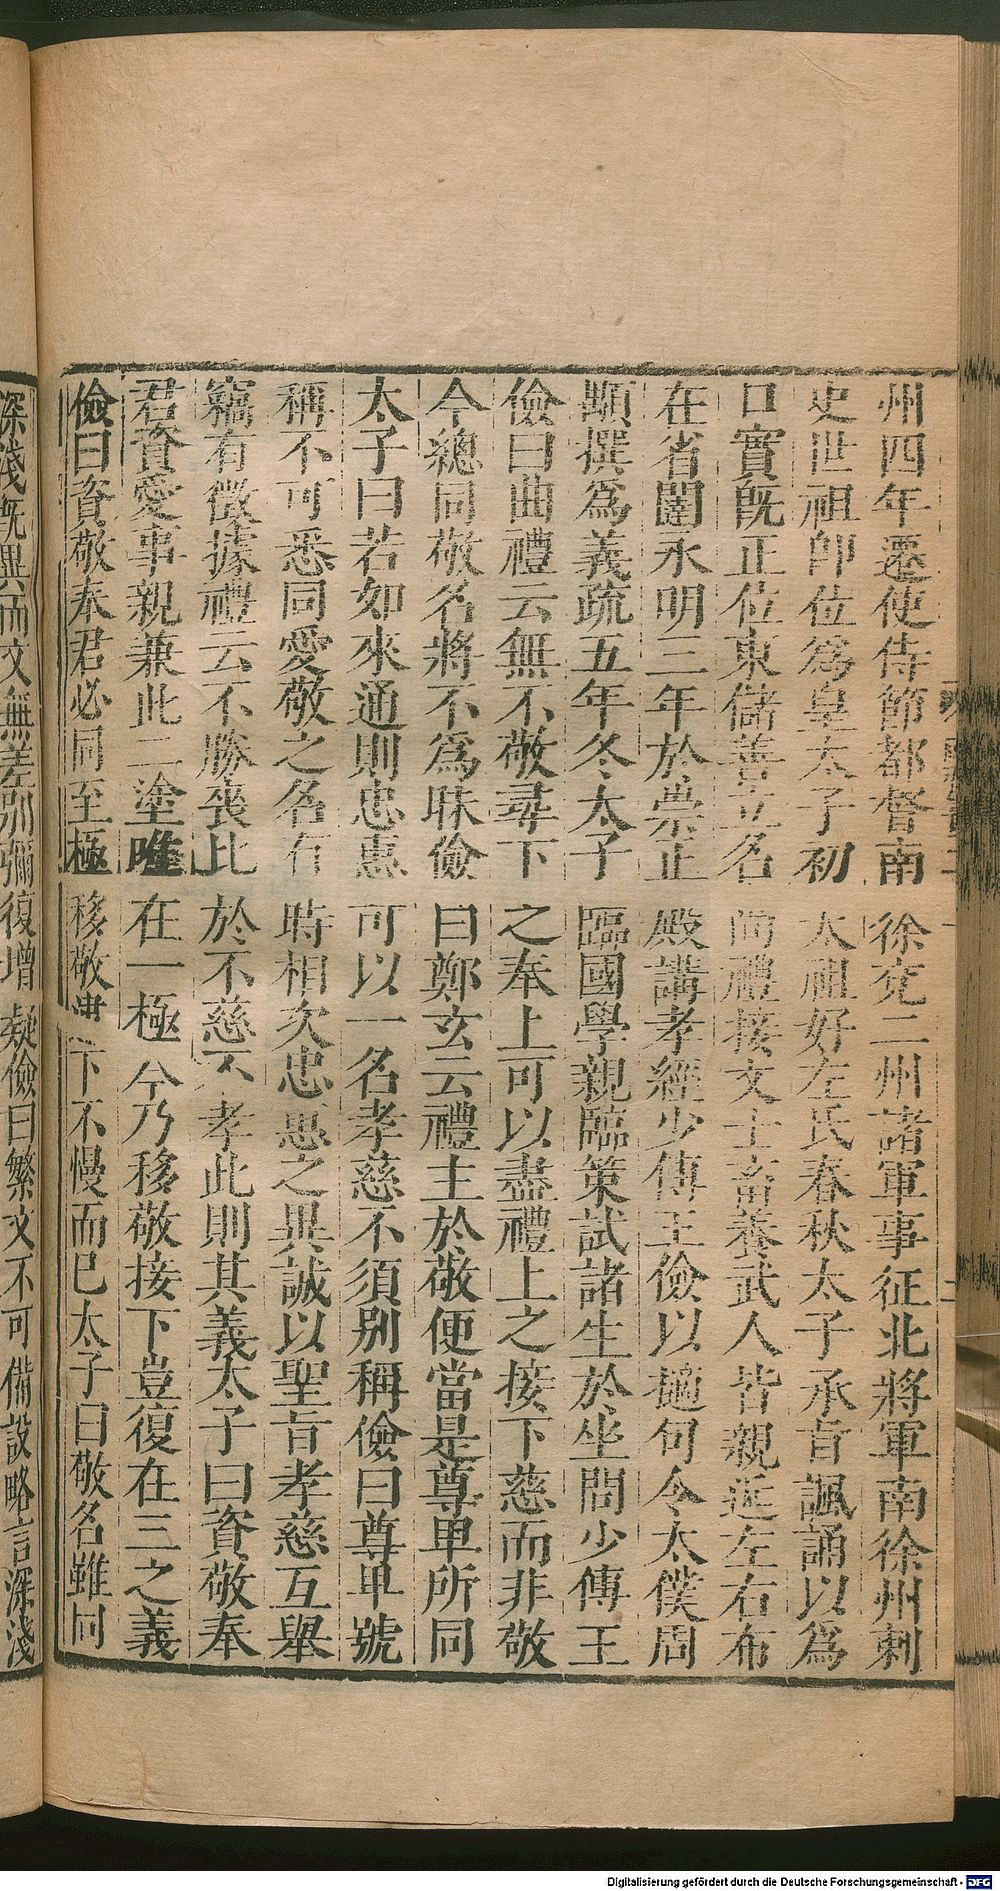 州四年遷使侍節都督南徐兖二州諸軍事征北將軍南徐州刺
史世祖即位爲皇太子初太祖好左氏春秋太子承旨諷誦以爲
口實旣正位東儲善立名尚禮接文士畜養武人皆親近左右布
在省闥永明三年於崇正殿講孝經少傅王儉以擿句令太僕周
顒撰爲義疏五年冬太子臨國學親臨策試諸生於坐問少傅王
儉曰曲禮云無不敬尋下之奉上可以盡禮上之接下慈而非敬
今總同敬名將不爲昧儉曰鄭玄云禮主於敬便當是尊卑所同
太子曰若如來通則忠惠可以一名孝慈不須別稱儉曰尊卑號
稱不可悉同愛敬之名有時相次忠惠之異誠以聖旨孝慈互舉
竊有徵據禮云不勝喪比於不慈不孝此則其義太子曰資敬奉
君資愛事親兼此二塗唯在一極今乃移敬接下豈復在三之義
儉曰資敬奉君必同至極移敬逮下不慢而已太子曰敬名雖同
深淺旣異而文無差別彌復增疑儉曰繁文不可備設略言深淺
Digitalisierung gefördert durch die Deutsche Forschungsgemeinschaft - DFG